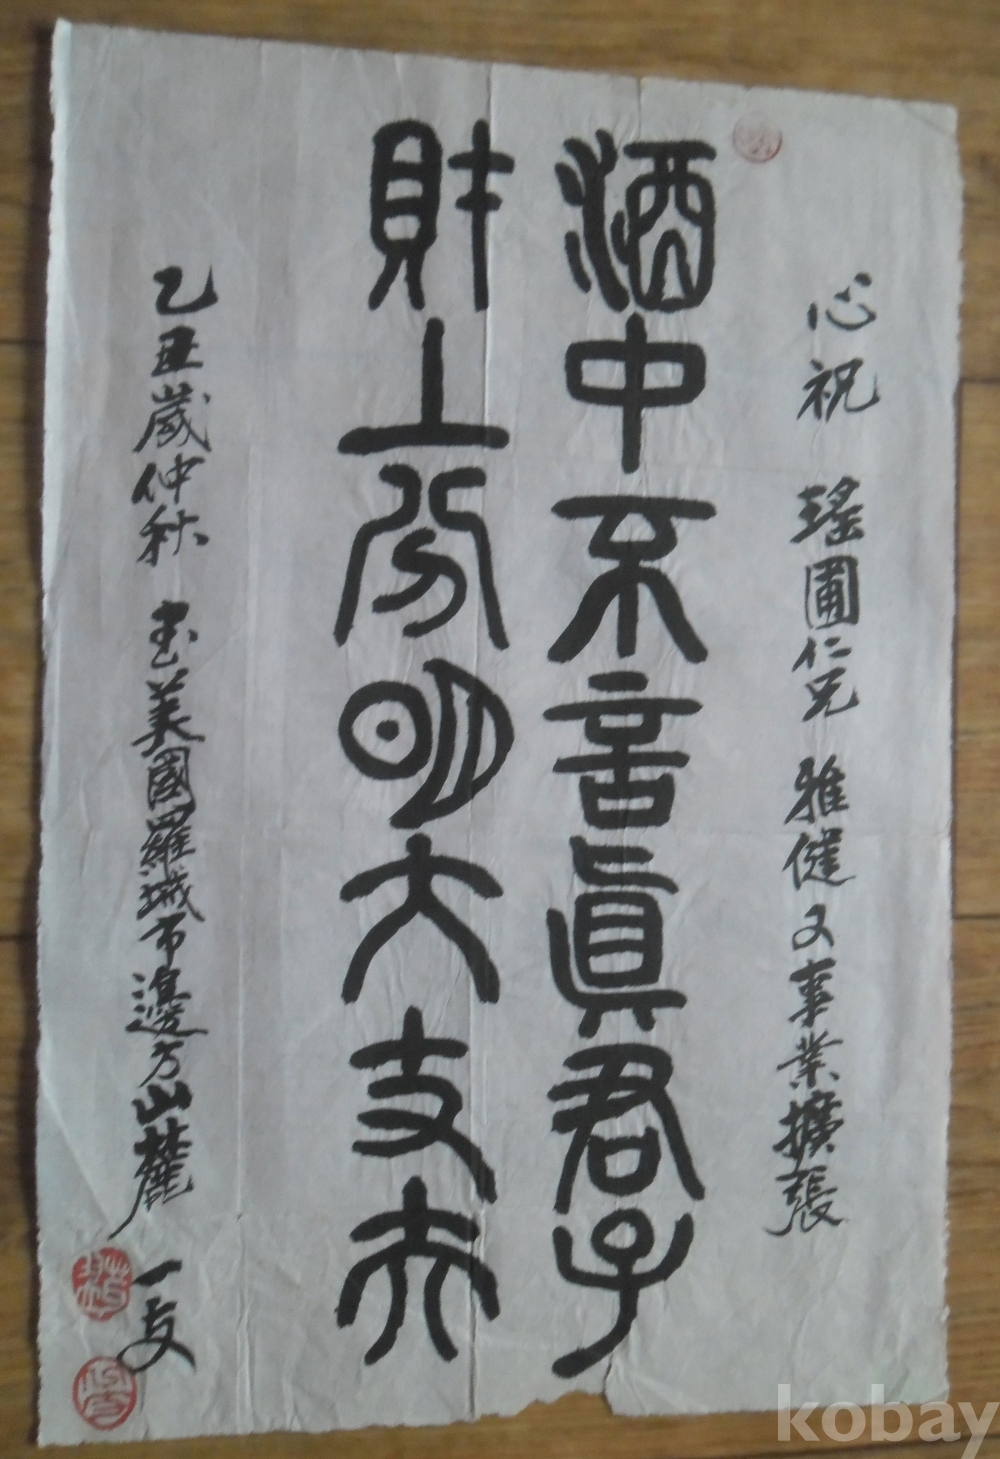 心祝 瑤圃仁兄 雅健又事業擴張
酒中不言眞君子
財上分明大丈夫
乙丑歲仲秋 於美國羅城市邊方山麓 一友
kobay